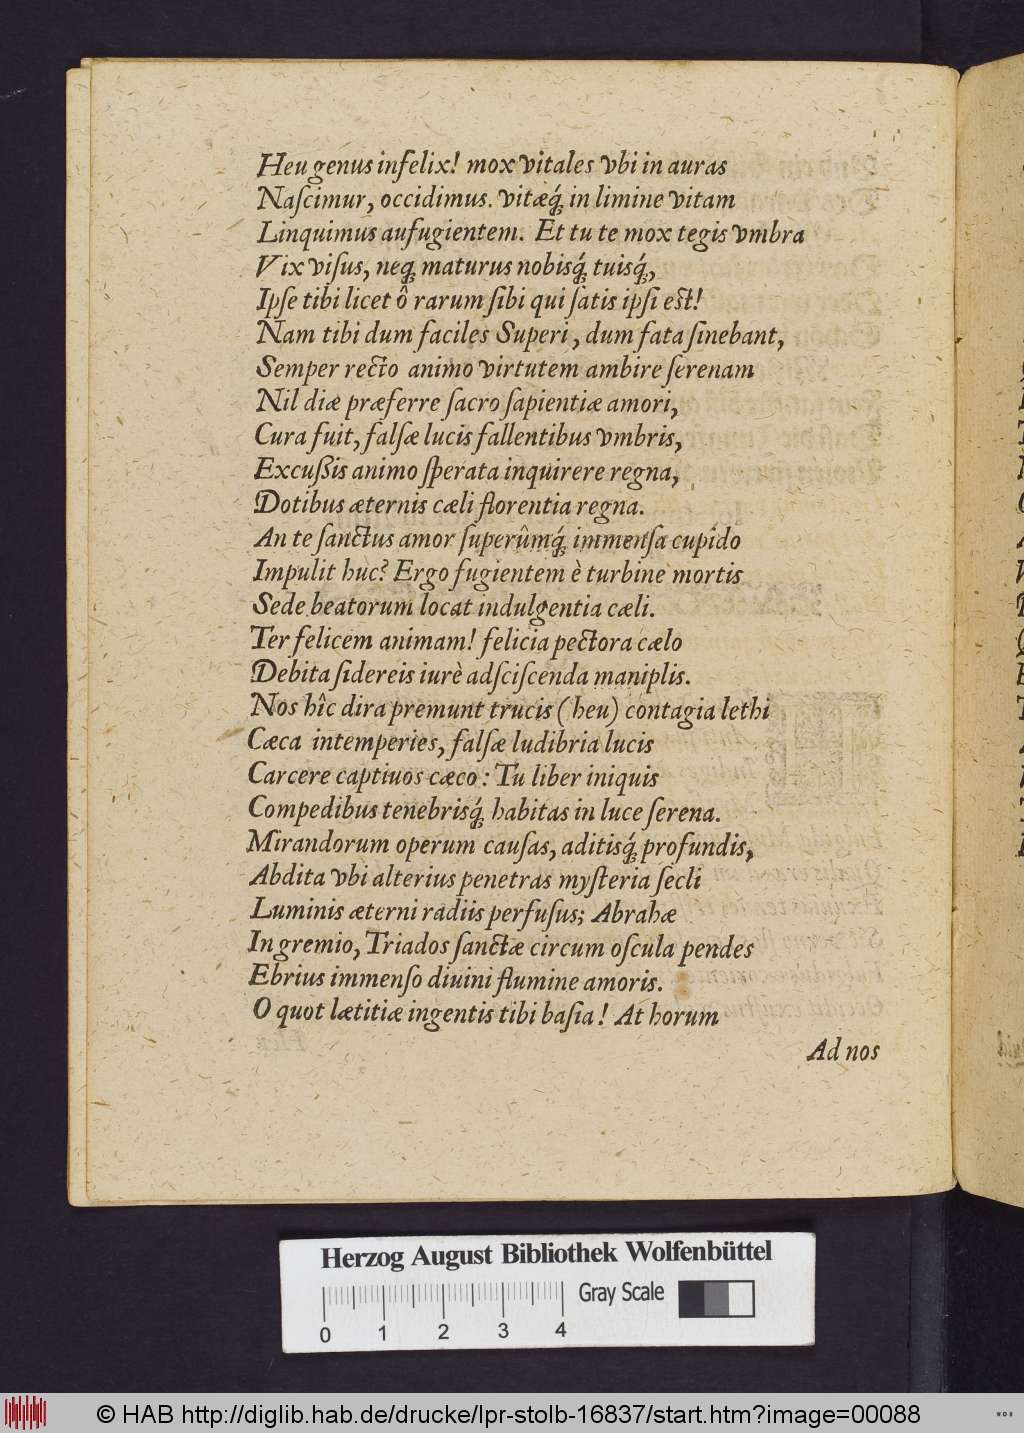 Heu genus infelix! mox vitales vbi in auras
Naſcimur, occidimus. vitæq́ꝫ in limine vitam
Linquimus aufugientem. Et tu te mox tegis vmbra
Vix viſus, neqꝫ maturus nobisq́ꝫ tuisq́ꝫ,
Ipſe tibi licet ô rarum ſibi qui ſatis ipſi est!
Nam tibi dum faciles Superi, dum fata ſinebant,
Semper recto animo virtutem ambire ſerenam
Nil diæ præferre ſacro ſapientiæ amori,
Cura fuit, falſæ lucis fallentibus vmbris,
Excußis animo ſperata inquirere regna,
Dotibus æternis cæli florentia regna.
An te ſanctus amor ſuperûmq́ꝫ immenſa cupido
Impulit huc? Ergo fugientem è turbine mortis
Sede beatorum locat indulgentia cæli.
Ter felicem animam! felicia pectora cælo
Debita ſidereis iurè adſciſcenda maniplis.
Nos hîc dira premunt trucis (heu) contagia lethi
Cæca intemperies, falſæ ludibria lucis
Carcere captiuos cæco: Tu liber iniquis
Compedibus tenebrisq́ꝫ habitas in luce ſerena.
Mirandorum operum cauſas, aditisq́ꝫ profundis,
Abdita vbi alterius penetras myſteria ſecli
Luminis æterni radiis perfuſus; Abrahæ
In gremio, Triados ſanctæ circum oſcula pendes
Ebrius immenſo diuini flumine amoris.
O quot lætitiæ ingentis tibi baſia! At horum
Ad nos
Herzog August Bibliothek Wolfenbüttel
Gray Scale
0 1 2 3 4
© HAB http://diglib.hab.de/drucke/lpr-stolb-16837/start.htm?image=00088